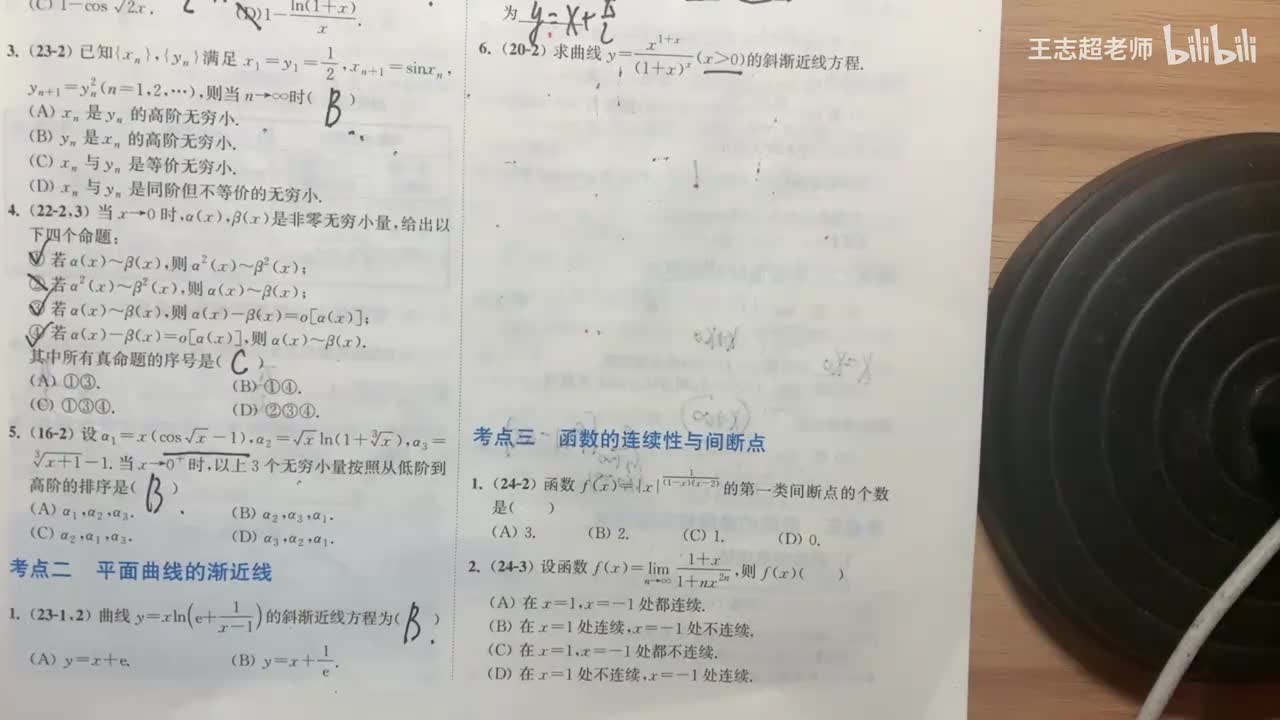 (C) 1-cos √2x.
(D) 1- ln(1+x)/x
3. (23-2) 已知{xₙ},{yₙ}满足 x₁=y₁=1/2,xₙ₊₁=sinxₙ,
yₙ₊₁=yₙ²(n=1,2,…),则当 n→∞时( B )
(A) xₙ 是 yₙ 的高阶无穷小.
(B) yₙ 是 xₙ 的高阶无穷小.
(C) xₙ 与 yₙ 是等价无穷小.
(D) xₙ 与 yₙ 是同阶但不等价的无穷小.
4. (22-2,3) 当 x→0 时,α(x),β(x)是非零无穷小量,给出以
下四个命题:
① 若 α(x)~β(x),则 α²(x)~β²(x);
② 若 α²(x)~β²(x),则 α(x)~β(x);
③ 若 α(x)~β(x),则 α(x)-β(x)=o[α(x)];
④ 若 α(x)-β(x)=o[α(x)],则 α(x)~β(x).
其中所有真命题的序号是( C )
(A) ①③.
(B) ①④.
(C) ①③④.
(D) ②③④.
5. (16-2) 设 α₁=x(cos√x-1),α₂=√x ln(1+∛x),α₃=
∛(x+1)-1. 当 x→0⁺时,以上 3 个无穷小量按照从低阶到
高阶的排序是( B )
(A) α₁,α₂,α₃.
(B) α₂,α₃,α₁.
(C) α₂,α₁,α₃.
(D) α₃,α₂,α₁.
考点二 平面曲线的渐近线
1. (23-1,2) 曲线 y=xln(e+1/(x-1))的斜渐近线方程为( B )
(A) y=x+e.
(B) y=x+1/e.
为 y=x+π/2
6. (20-2) 求曲线 y=x¹⁺ˣ/(1+x)ˣ(x>0)的斜渐近线方程.
考点三 函数的连续性与间断点
1. (24-2) 函数 f(x)=|x|^(1/((1-x)(x-2))) 的第一类间断点的个数
是( )
(A) 3.
(B) 2.
(C) 1.
(D) 0.
2. (24-3) 设函数 f(x)=lim n→∞ (1+x)/(1+nx²ⁿ),则 f(x)( )
(A) 在 x=1,x=-1 处都连续.
(B) 在 x=1 处连续,x=-1 处不连续.
(C) 在 x=1,x=-1 处都不连续.
(D) 在 x=1 处不连续,x=-1 处连续.
王志超老师 bilibili